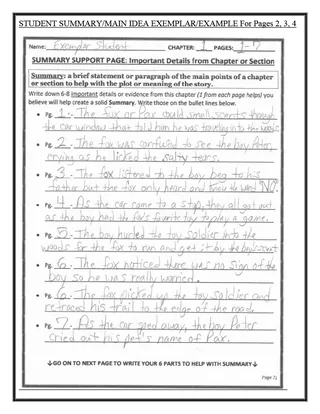 STUDENT SUMMARY/MAIN IDEA EXEMPLAR/EXAMPLE For Pages 2, 3, 4
Name: Exemplar Student CHAPTER: 1 PAGES: 1-7
SUMMARY SUPPORT PAGE: Important Details from Chapter or Section
Summary: a brief statement or paragraph of the main points of a chapter
or section to help with the plot or meaning of the story.
Write down 6-8 important details or evidence from this chapter (1 from each page helps) you
believe will help create a solid Summary. Write those on the bullet lines below.
• Pg. 1. The fox or Pax could smell scents through
the car window that told him he was traveling into the woods.
• Pg. 2. The fox was confused to see the boy Peter,
crying as he licked the salty tears.
• Pg. 3. The fox listened to the boy beg to his
father but the fox only heard and knew the word "NO."
• Pg. 4. As the car came to a stop, they all got out
as the boy had the fox's favorite toy to play a game.
• Pg. 5. The boy hurled the toy soldier into the
woods for the fox to run and get it by the boy's scent.
• Pg. 6. The fox noticed there was no sign of the
boy so he was really worried.
• Pg. 6. The fox picked up the toy soldier and
retraced his trail to the edge of the road.
• Pg. 7. As the car sped away, the boy Peter
cried out his pet's name of Pax.
↓GO ON TO NEXT PAGE TO WRITE YOUR 6 PARTS TO HELP WITH SUMMARY↓
Page 21